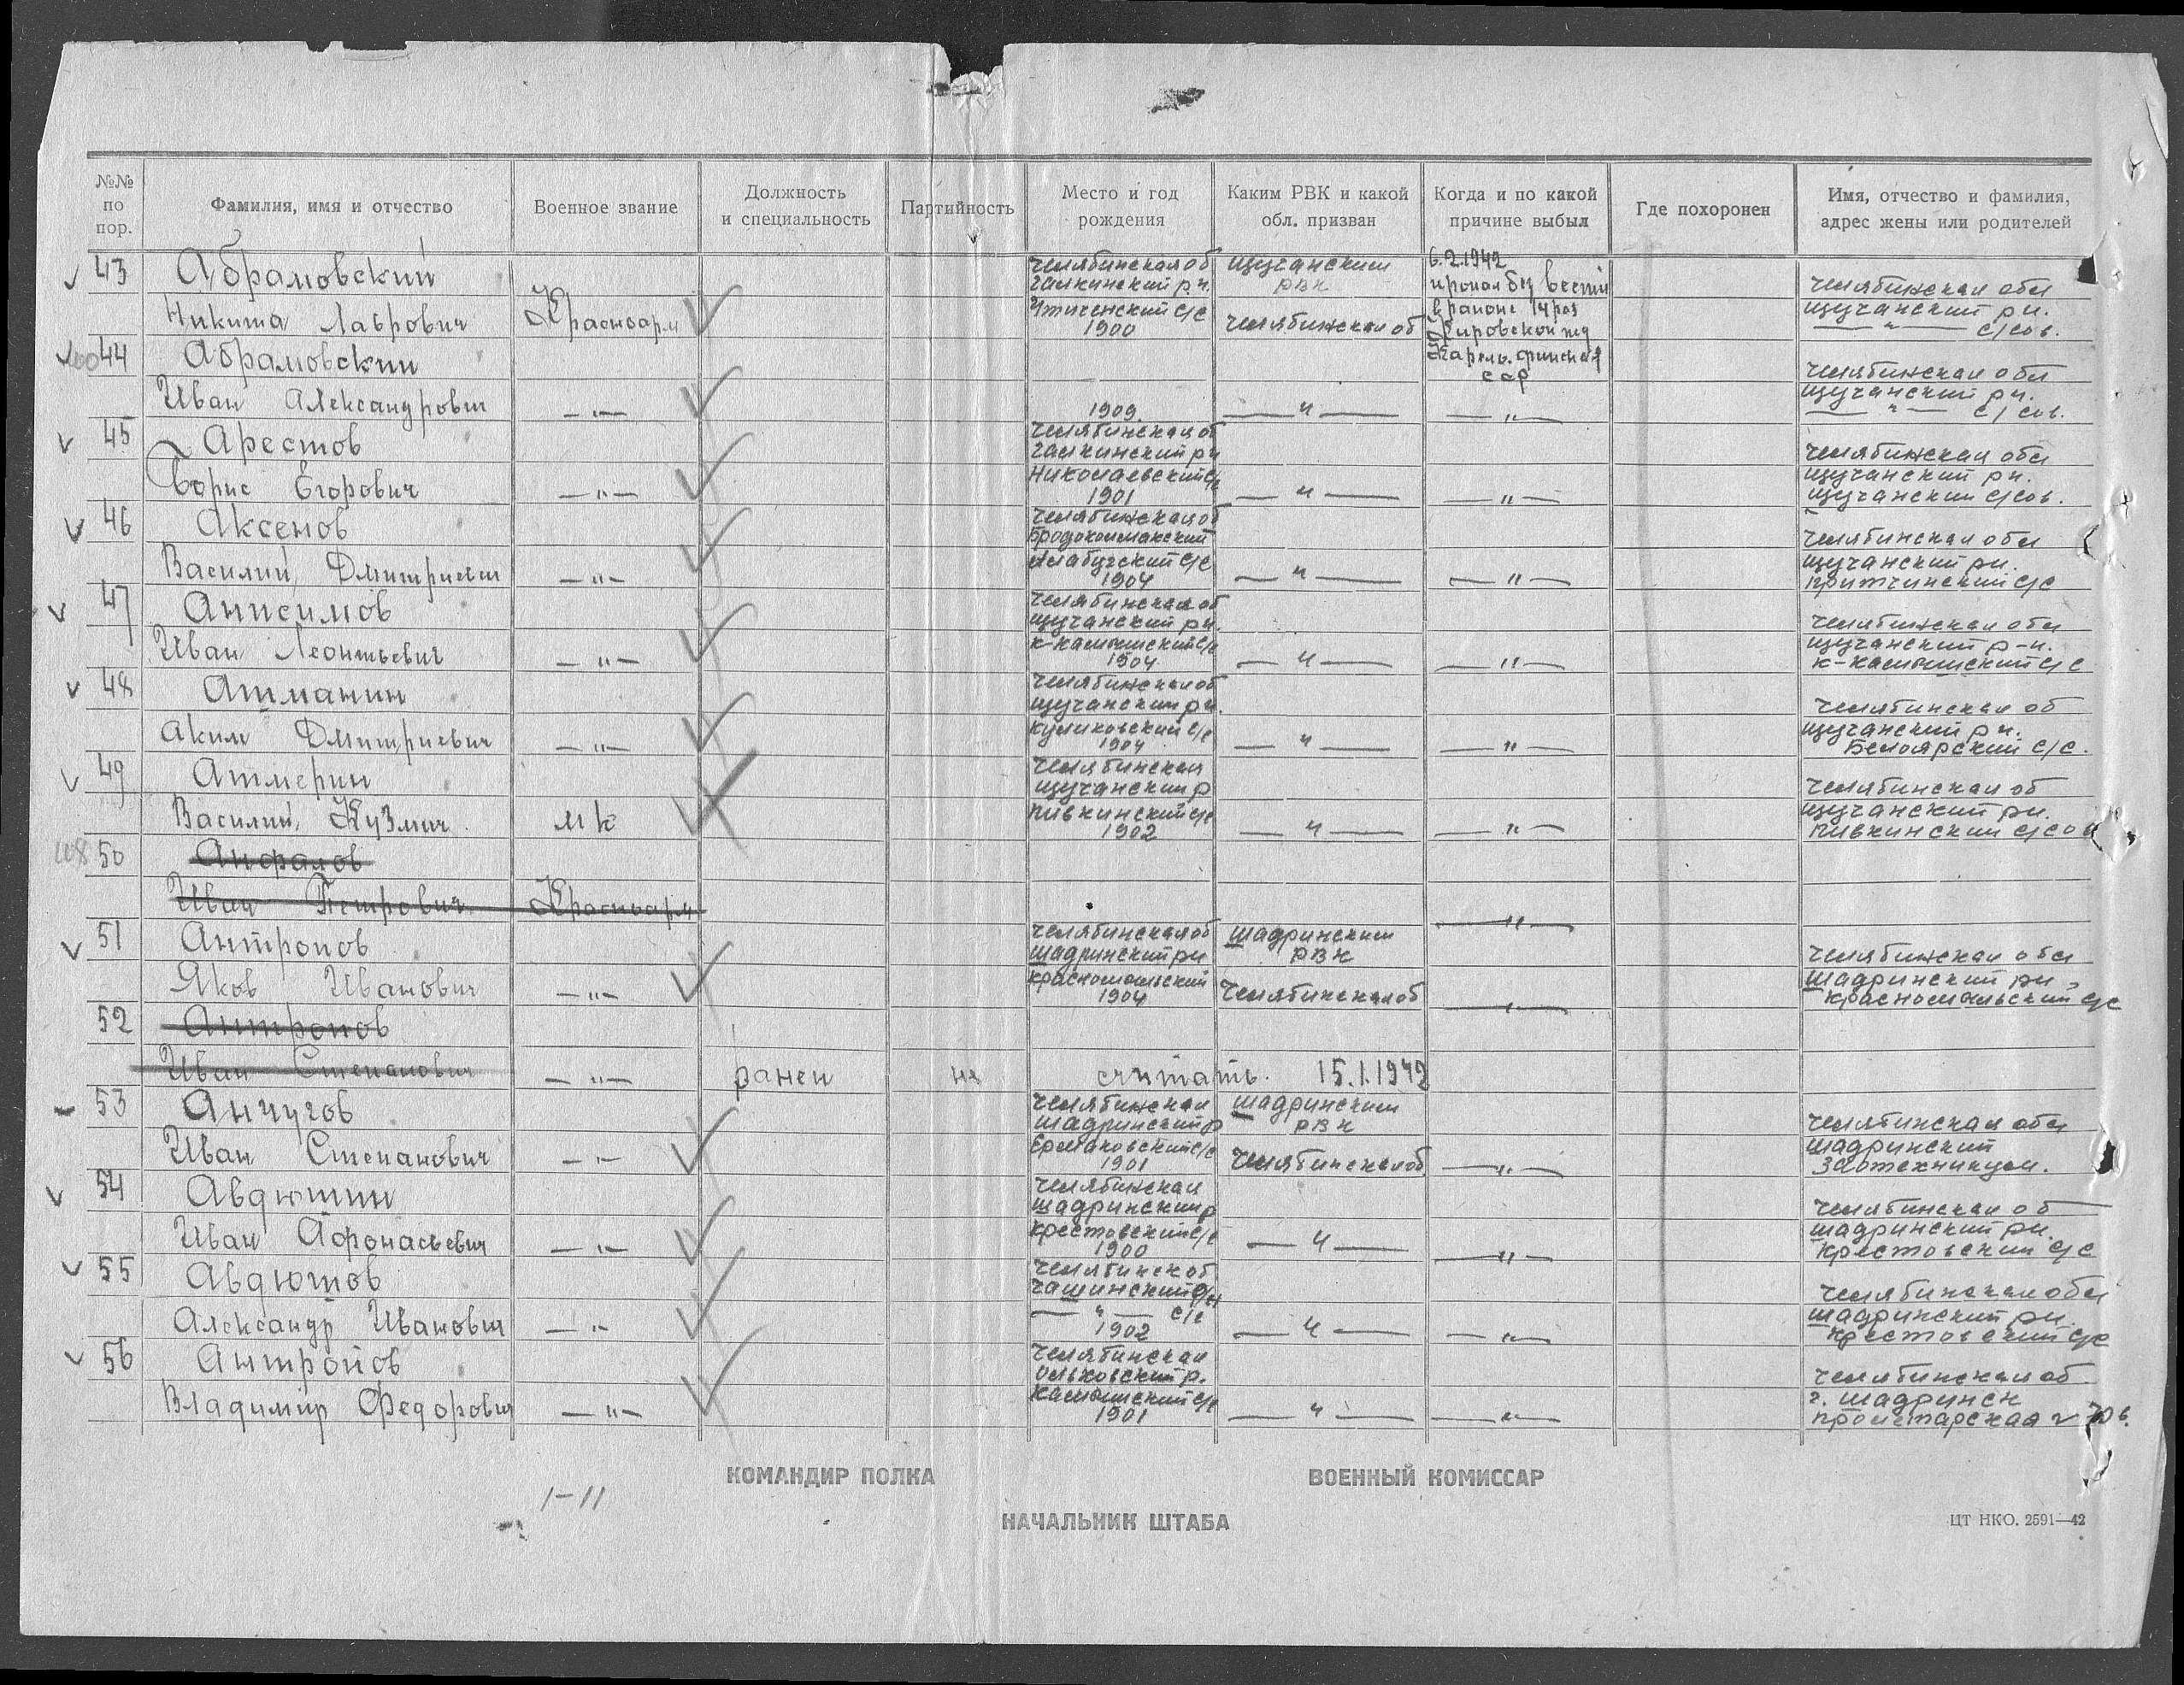 №№ по пор.
Фамилия, имя и отчество
Военное звание
Должность и специальность
Партийность
Место и год рождения
Каким РВК и какой обл. призван
Когда и по какой причине выбыл
Где похоронен
Имя, отчество и фамилия, адрес жены или родителей
43 Абрамовский Челябинская об Щучанским 6.2.1942
Галкинский рн. РВК пропал без вести Челябинская обл
Никита Лаврович Красноарм Птиченский с/с в районе 14 раз Щучанский рн.
1900 Челябинская об Кировской жд — " — с/сов.
44 Абрамовский Карело. финской
сср Челябинская обл
Иван Александрович — " — 1909 — " — — " — Щучанский рн.
— " — с/сов.
45 Арестов Челябинская об
Галкинский рн Челябинская обл
Борис Егорович — " — Николаевский с/с Щучанский рн.
1901 — " — — " — Щучанский с/сов.
46 Аксенов Челябинская об
Бродокалмакский Челябинская обл
Василий Дмитриевич — " — с/с Щучанский рн.
1904 — " — — " — Притчинский с/с
47 Анисимов Челябинская об
Щучанский рн. Челябинская обл
Иван Леонтьевич — " — К-Камышский с/с Щучанский р-н.
1904 — " — — " — К-Камышский с/с
48 Атманин Челябинская об
Щучанский рн. Челябинская об
Аким Дмитриевич — " — Куликовский с/с Щучанский рн.
1904 — " — — " — Белоярский с/с.
49 Атмерин Челябинская
Щучанский р Челябинская об
Василий Кузмич мк Пивкинский с/с Щучанский рн.
1902 — " — — " — Пивкинский с/сов
50 Анфалов
Иван Петрович Красноарм — " —
51 Антропов Челябинская об Шадринским
Шадринский рн РВК Челябинская обл
Яков Иванович — " — Красномыльский Шадринский рн
1904 Челябинская об — " — Красномыльский с/с
52 Антропов
Иван Степанович — " — ранен не считать. 15.1.1942
53 Анчугов Челябинская Шадринским
Шадринский р РВК Челябинская обл
Иван Степанович — " — Ермаковский с/с Шадринский
1901 Челябинская об — " — Зоотехникум.
54 Авдюшин Челябинская
Шадринский р Челябинская об
Иван Афонасьевич — " — Крестовский с/с Шадринский рн.
1900 — " — — " — Крестовский с/с
55 Авдюшов Челябинск об
Чашинский рн Челябинская обл
Александр Иванович — " — — " — с/с Шадринский рн.
1902 — " — — " — Крестовский с/с
56 Антропов Челябинская
Ольховский р. Челябинская об
Владимир Федорович — " — Камышский с/с г. Шадринск
1901 — " — — " — Пролетарская 70 в.
КОМАНДИР ПОЛКА
ВОЕННЫЙ КОМИССАР
1-11
НАЧАЛЬНИК ШТАБА
ЦТ НКО. 2591—42